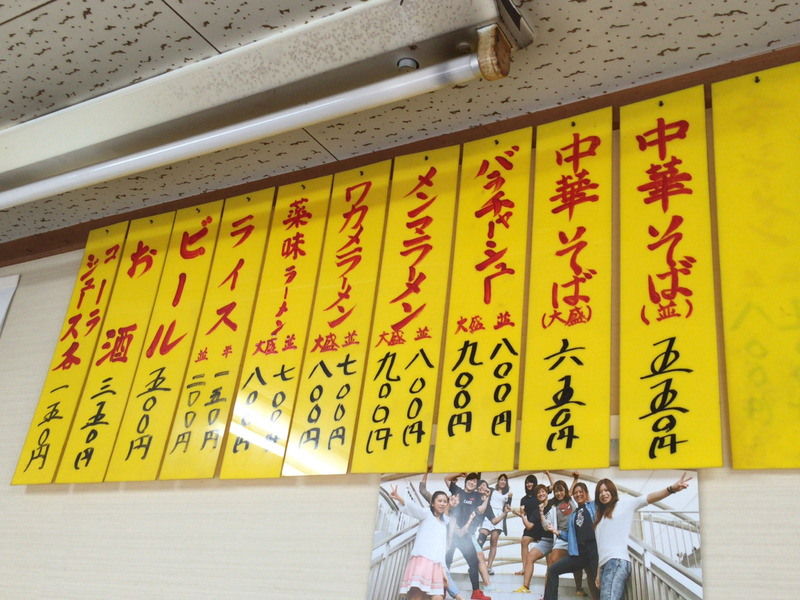 中華そば
(並)
五五〇円
中華そば
(大盛)
六五〇円
バラチャーシュー
並 八〇〇円
大盛 九〇〇円
メンマラーメン
並 八〇〇円
大盛 九〇〇円
ワカメラーメン
並 七〇〇円
大盛 八〇〇円
薬味ラーメン
並 七〇〇円
大盛 八〇〇円
ライス
半 一五〇円
並 二〇〇円
ビール
五〇〇円
お酒
三五〇円
コーラ
ジュース各
一五〇円